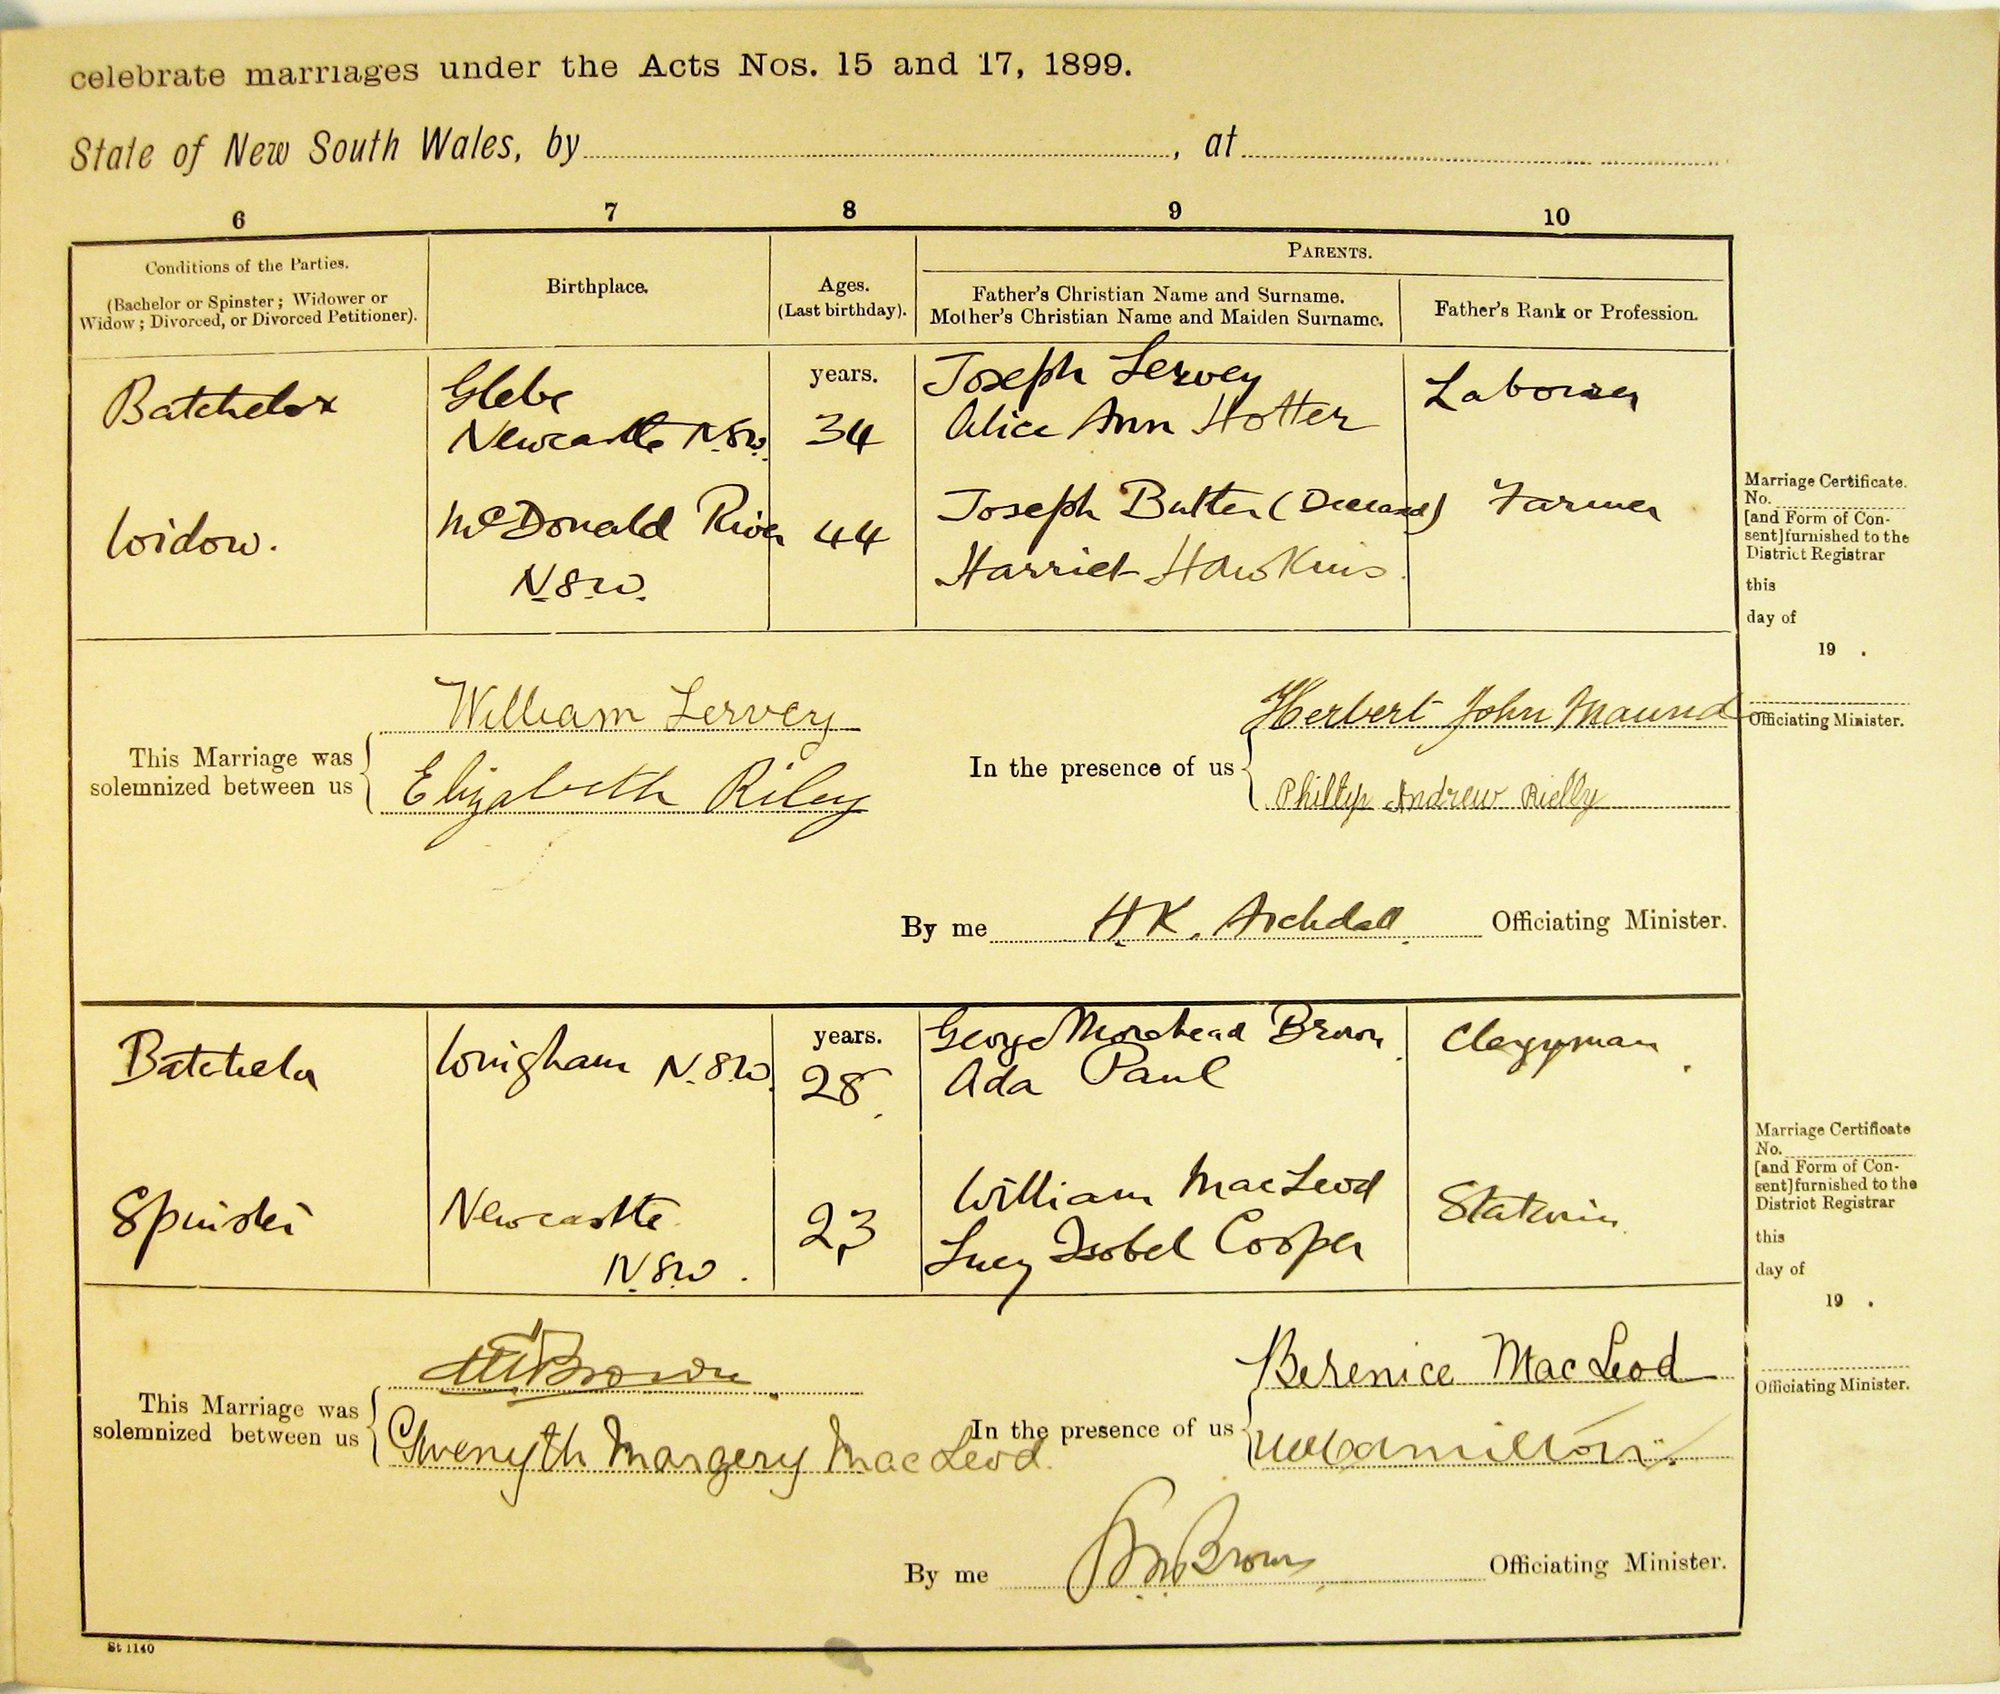 celebrate marriages under the Acts Nos. 15 and 17, 1899.
State of New South Wales, by , at
6 7 8 9 10
Conditions of the Parties.
(Bachelor or Spinster; Widower or
Widow; Divorced, or Divorced Petitioner).
Birthplace.
Ages.
(Last birthday).
PARENTS.
Father's Christian Name and Surname.
Mother's Christian Name and Maiden Surname.
Father's Rank or Profession.
Batchelor
Glebe
Newcastle N.S.W.
years.
34
Joseph Lervey
Alice Ann Hotter
Labourer
Widow.
McDonald River
N.S.W.
44
Joseph Butler (Deceased)
Harriet Hawkins.
Farmer
Marriage Certificate.
No.
[and Form of Con-
sent] furnished to the
District Registrar
this
day of
19 .
Officiating Minister.
This Marriage was
solemnized between us
William Lervey
Elizabeth Riley
In the presence of us
Herbert John Maund
Phillip Andrew Rielly
By me H.K. Archdall. Officiating Minister.
Batchelor
Wingham N.S.W.
years.
28
George Morehead Brown
Ada Paul
Clergyman
Spinster
Newcastle
N.S.W.
23
William MacLeod
Lucy Isobel Cooper
Marriage Certificate
No.
[and Form of Con-
sent] furnished to the
District Registrar
this
day of
19 .
Officiating Minister.
This Marriage was
solemnized between us
Brown
Gwenyth Margery MacLeod.
In the presence of us
Berenice MacLeod
By me Brown Officiating Minister.
St 1140